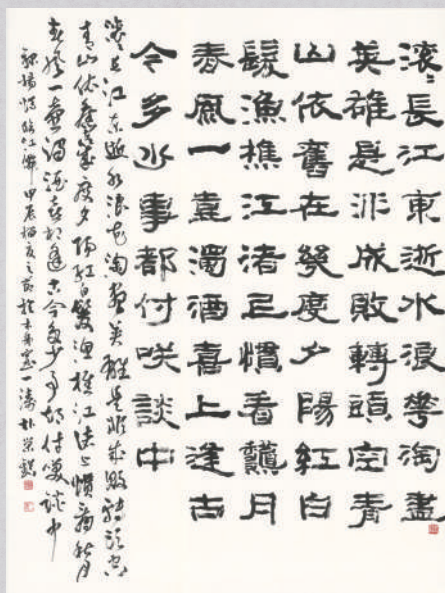 滾〻長江東逝水浪華淘盡
英雄是非成敗轉頭空青
山依舊在幾度夕陽紅白
髮漁樵江渚上慣看龝月
春風一壺濁酒喜上逢古
今多少事都付咲談中
滾〻長江東逝水浪花淘盡英雄是非成敗轉頭空
青山依舊在幾度夕陽紅白髮漁樵江渚上慣看秋月
春風一壺濁酒喜相逢古今多少事都付笑談中
錄楊慎臨江仙 甲辰梅夏之節於 窓一濤